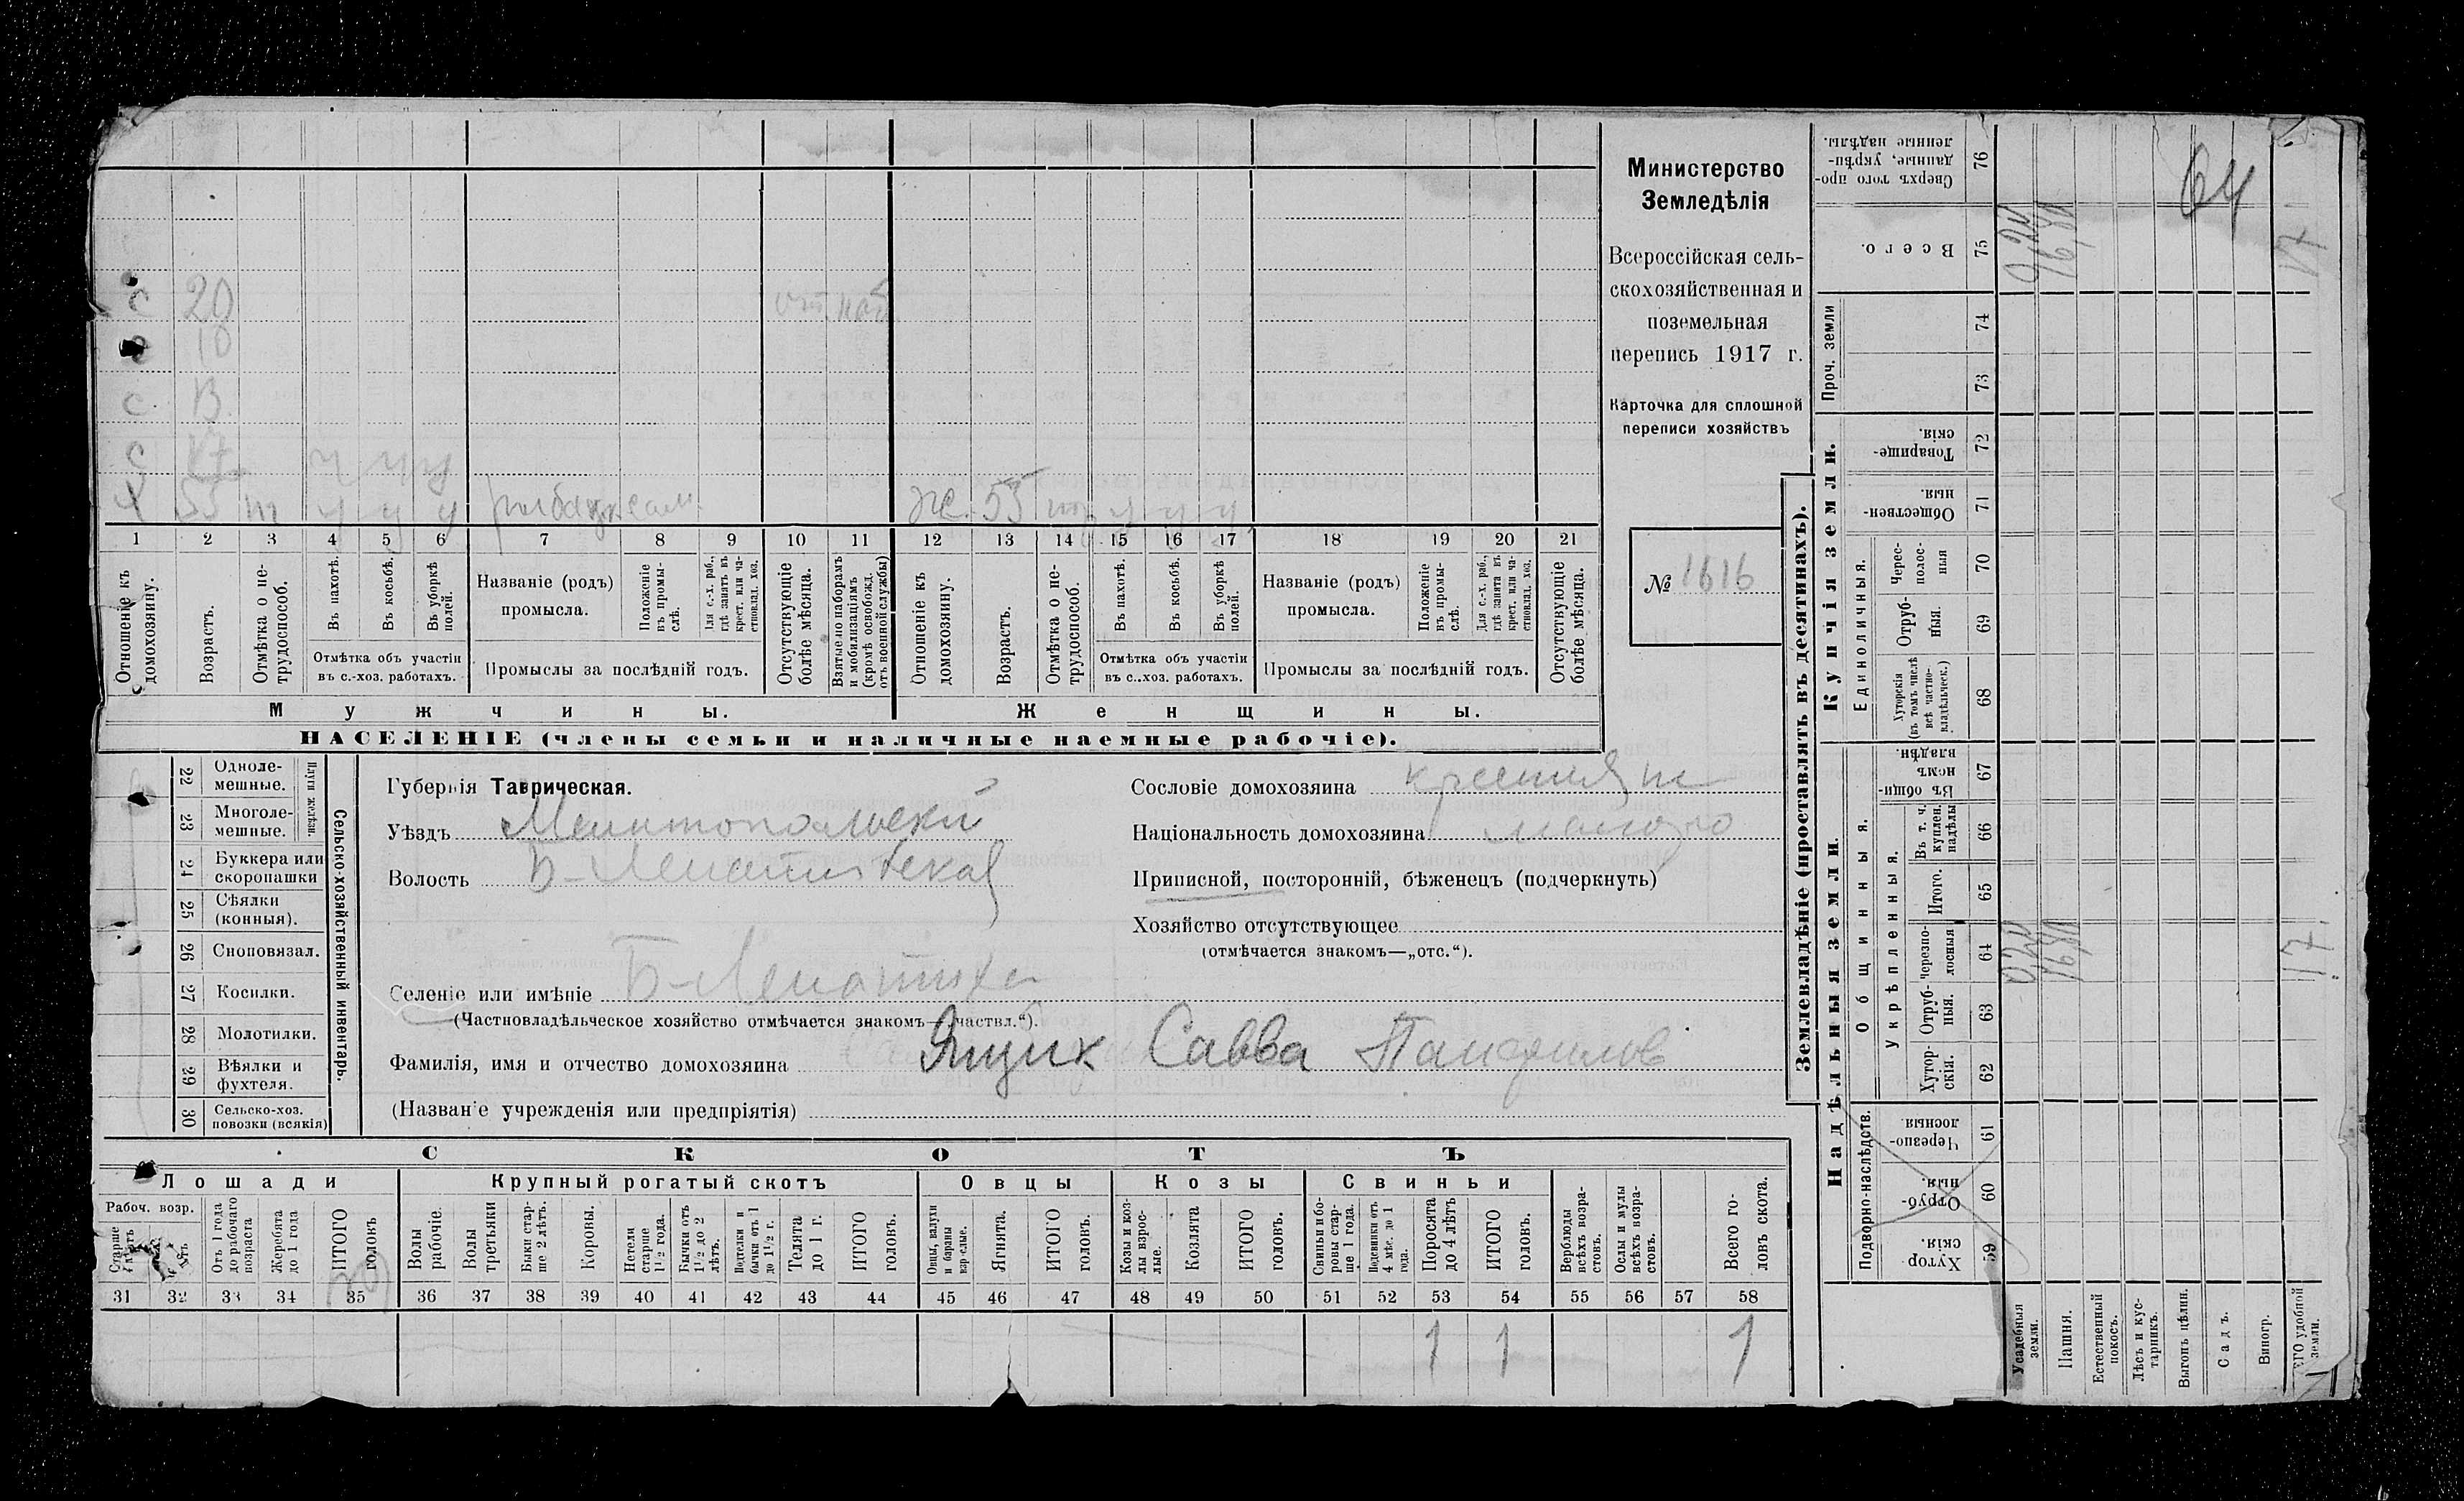 с 20 от. наб.
с 10
с. 13.
с 17 ч ч ч
Х 55 т ч ч ч рыбак хсам же. 55 т ч ч ч
1 2 3 4 5 6 7 8 9 10 11 12 13 14 15 16 17 18 19 20 21
Отношеніе къ домохозяину.
Возрастъ.
Отмѣтка о нетрудоспособ.
Въ пахотѣ.
Въ косьбѣ.
Въ уборкѣ полей.
Отмѣтка объ участіи
въ с.-хоз. работахъ.
Названіе (родъ)
промысла.
Положеніе въ промыслѣ.
Для с.-х. раб., гдѣ занятъ въ крест. или частновлад. хоз.
Промыслы за послѣдній годъ.
Отсутствующіе болѣе мѣсяца.
Взятые по наборамъ и мобилизаціямъ (кромѣ освобожд. отъ военной службы)
Отношеніе къ домохозяину.
Возрастъ.
Отмѣтка о нетрудоспособ.
Въ пахотѣ.
Въ косьбѣ.
Въ уборкѣ полей.
Отмѣтка объ участіи
въ с.-хоз. работахъ.
Названіе (родъ)
промысла.
Положеніе въ промыслѣ.
Для с.-х. раб., гдѣ занята въ крест. или частновлад. хоз.
Промыслы за послѣдній годъ.
Отсутствующіе болѣе мѣсяца.
Мужчины. Женщины.
НАСЕЛЕНІЕ (члены семьи и наличные наемные рабочіе).
Министерство
Земледѣлія
Всероссійская сель-
скохозяйственная и
поземельная
перепись 1917 г.
Карточка для сплошной
переписи хозяйствъ
№ 1616
22 Одноле-
мешные.
23 Многоле-
мешные.
Плуги желѣзн.
24 Буккера или
скоропашки
25 Сѣялки
(конныя).
26 Сноповязал.
27 Косилки.
28 Молотилки.
29 Вѣялки и
фухтеля.
30 Сельско-хоз.
повозки (всякія)
Сельско-хозяйственный инвентарь.
Губернія Таврическая.
Уѣздъ Мелитопольский
Волость Б-Лепатихская
Селеніе или имѣніе Б-Лепатиха
(Частновладѣльческое хозяйство отмѣчается знакомъ—„частвл.“).
Фамилія, имя и отчество домохозяина Ящик Савва Панфилов
(Названіе учрежденія или предпріятія)
Сословіе домохозяина крестьян
Національность домохозяина малоро
Приписной, посторонній, бѣженецъ (подчеркнуть)
Хозяйство отсутствующее
(отмѣчается знакомъ—„отс.“).
СКОТЪ
Лошади Крупный рогатый скотъ Овцы Козы Свиньи
Рабоч. возр.
Старше
лѣтъ
Отъ 1 года до рабочаго возраста
Жеребята до 1 года
ИТОГО головъ
Волы рабочіе.
Волы третьяки
Быки старше 2 лѣтъ.
Коровы.
Нетели старше 1½ года.
Бычки отъ 1½ до 2 лѣтъ.
Подтелки и бычки отъ 1 до 1½ г.
Телята до 1 г.
ИТОГО головъ.
Овцы, валухи и бараны взрослые.
Ягнята.
ИТОГО головъ.
Козы и козлы взрослые.
Козлята
ИТОГО головъ.
Свиньи и боровы старше 1 года.
Подсвинки отъ 4 мѣс. до 1 года.
Поросята до 4 лѣтъ
ИТОГО головъ.
Верблюды всѣхъ возрастовъ.
Ослы и мулы всѣхъ возрастовъ.
Всего головъ скота.
31 32 33 34 35 36 37 38 39 40 41 42 43 44 45 46 47 48 49 50 51 52 53 54 55 56 57 58
1 1 1
Землевладѣніе (проставлять въ десятинахъ).
Надѣльныя земли. Купчія земли. Проч. земли
Подворно-наслѣдств.
Общинныя.
Укрѣпленныя.
Единоличныя.
Хуторскія. 59
Отрубныя. 60
Черезполосныя 61
Хуторскія. 62
Отрубныя. 63
Черезполосныя 64
Итого. 65
Въ т. ч. куплен. надѣлы 66
Въ общинномъ владѣн. 67
Хуторскія (въ томъ числѣ всѣ частновладѣльческ.) 68
Отрубныя. 69
Черес-полосныя 70
Общественныя. 71
Товарищескія. 72
73
74
Всего. 75
Сверхъ того проданные, укрѣпленные надѣлы. 76
Усадебныя земли.
Пашня.
Естественный покосъ.
Лѣсъ и кустарникъ.
Выгонъ цѣлин.
Садъ.
Виногр.
ЕГО удобной земли.
17
17
64